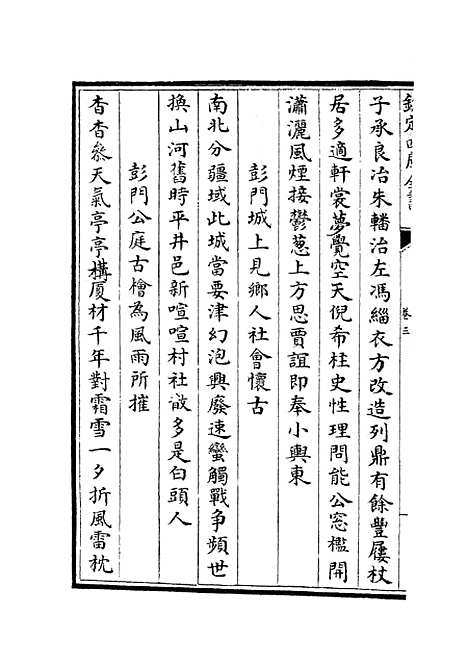 欽定四庫全書
卷三
子承良冶朱轓治左馮緇衣方改造列鼎有餘豐屨杖
居多適軒裳夢覺空天倪希柱史性理問能公窓檻開
瀟灑風煙接鬱蔥上方思賈誼即奉小輿東
彭門城上見鄉人社會懷古
南北分疆域此城當要津幻泡興廢速蠻觸戰爭頻世
換山河舊時平井邑新喧喧村社散多是白頭人
彭門公庭古檜為風雨所摧
杳杳叅天氣亭亭構厦材千年對霜雪一夕折風雷枕